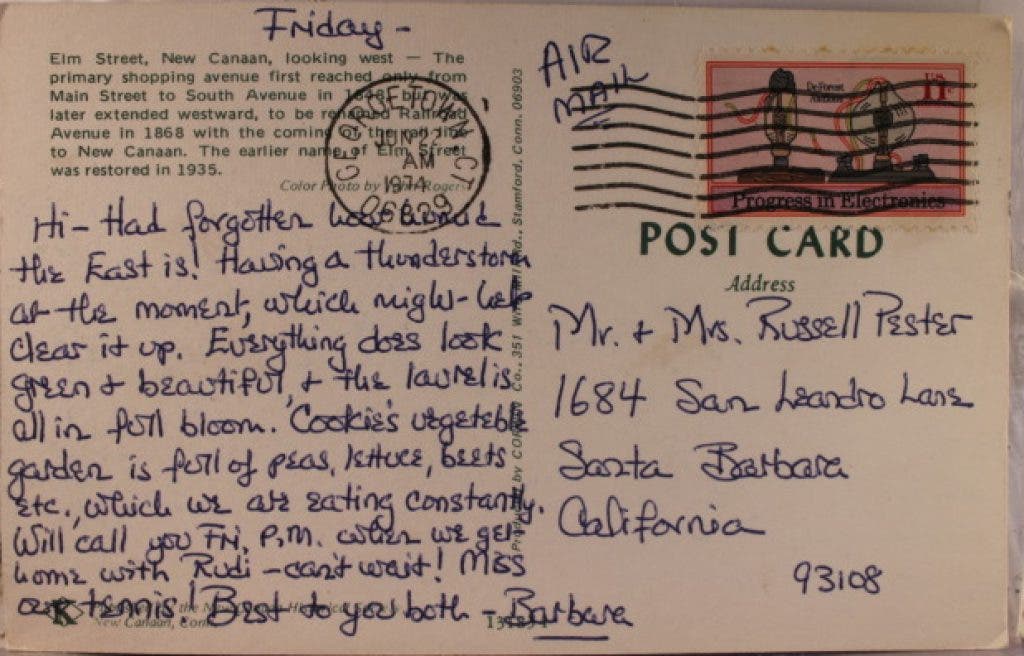 Friday -
Elm Street, New Canaan, looking west — The
primary shopping avenue first reached only from
Main Street to South Avenue in but was
later extended westward, to be renamed Railroad
Avenue in 1868 with the coming of the rail line
to New Canaan. The earlier name of Elm Street
was restored in 1935.
Color Photo by John Rogers
GEORGETOWN, CT
JUN
AM
1974
06829
Hi - Had forgotten how humid
the East is! Having a thunderstorm
at the moment, which might help
clear it up. Everything does look
green & beautiful, & the laurel is
all in full bloom. Cookie's vegetable
garden is full of peas, lettuce, beets
etc., which we are eating constantly.
Will call you Fri. P.M. when we get
home with Rudi - can't wait! Miss
our tennis! Best to you both - Barbara
the Historical
New Canaan, Conn.
Co., 351 Stamford, Conn. 06903
AIR
MAIL
DeForest
Audions
US
11c
Progress in Electronics
POST CARD
Address
Mr. & Mrs. Russell Pester
1684 San Leandro Lane
Santa Barbara
California
93108